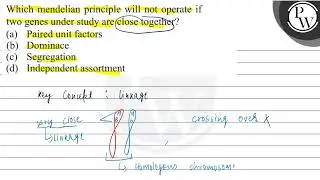 Which mendelian principle will not operate if
two genes under study are close together?
(a) Paired unit factors
(b) Dominace
(c) Segregation
(d) Independent assortment
PW
Key Concept : linkage
very close
crossing over X
↳ linkage
↳ homologous chromosome